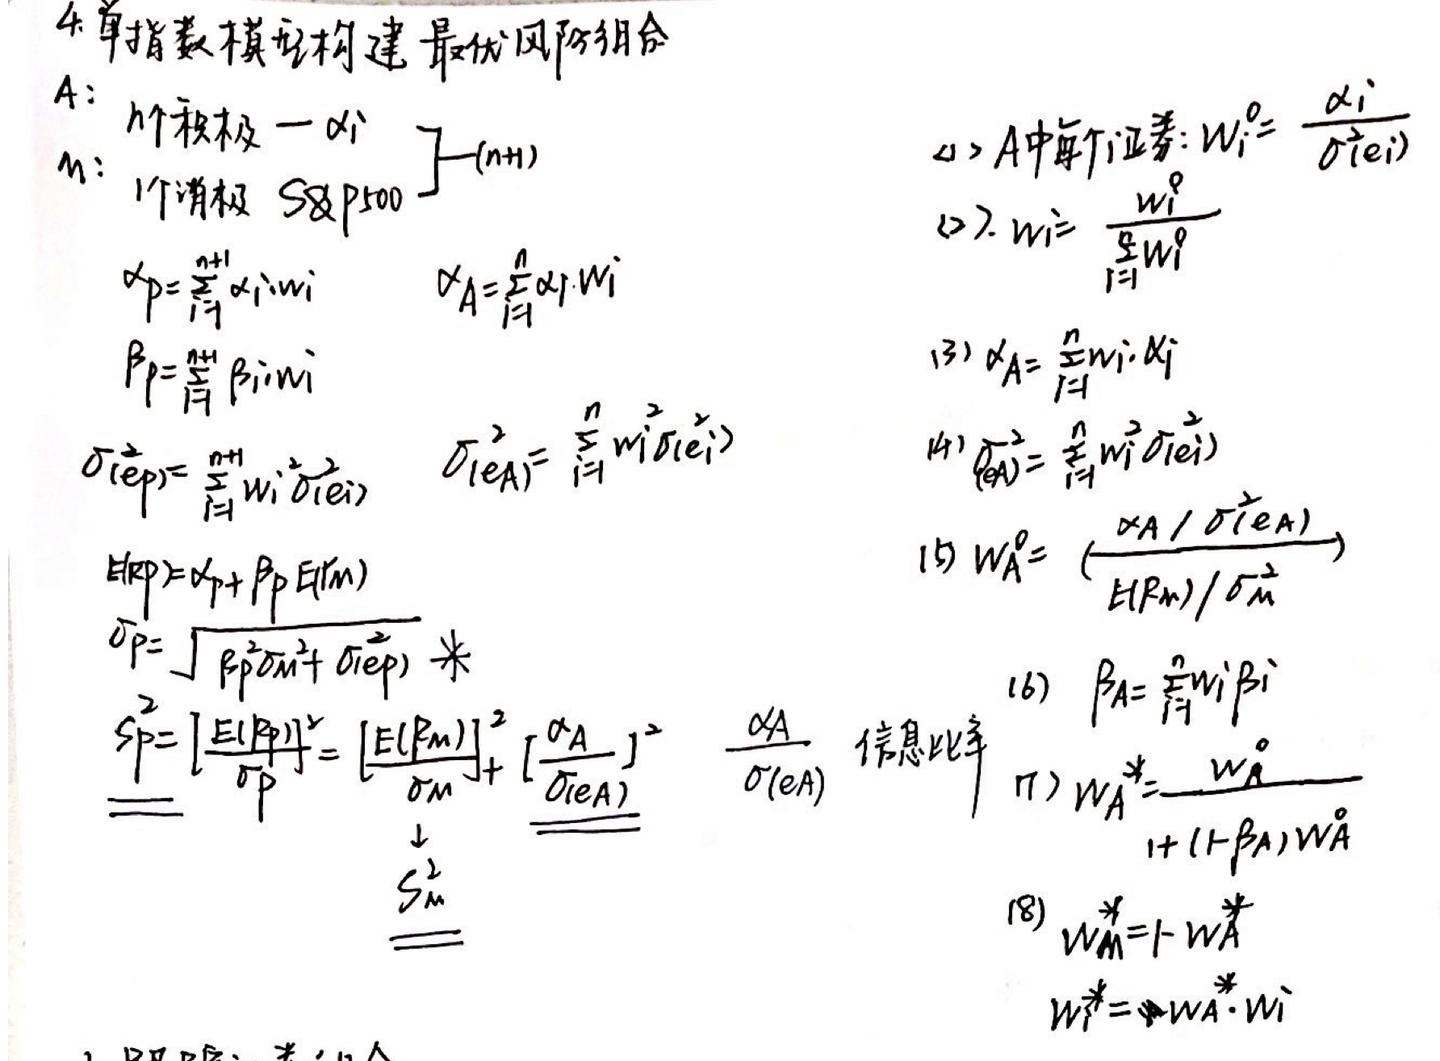 4. 单指数模型构建最优风险组合
A: n个积极 — αi
M: 1个消极 S&P500 ](n+1)
αp = Σ(i=1→n+1) αi·wi   αA = Σ(i=1→n) αi·wi
βp = Σ(i=1→n+1) βi·wi
σ²(ep) = Σ(i=1→n+1) wi²σ²(ei)   σ²(eA) = Σ(i=1→n) wi²σ²(ei)
E(Rp) = αp + βp E(rm)
σp = √(βp²σM² + σ²(ep)) *
Sp² = [E(Rp)/σp]² = [E(RM)/σM]² + [αA/σ(eA)]²   αA/σ(eA) 信息比率
↓
SM²
<1> A中每个i证券: Wi⁰ = αi/σ²(ei)
<2>. wi = wi⁰/Σ(i=1→n) wi⁰
(3) αA = Σ(i=1→n) wi·αi
(4) σ²(eA) = Σ(i=1→n) wi²σ²(ei)
(5) WA⁰ = (αA/σ²(eA) / E(RM)/σM²)
(6) βA = Σ(i=1→n) wiβi
(7) WA* = WA⁰/1+(1-βA)WA⁰
(8) WM* = 1-WA*
Wi* = WA*·Wi